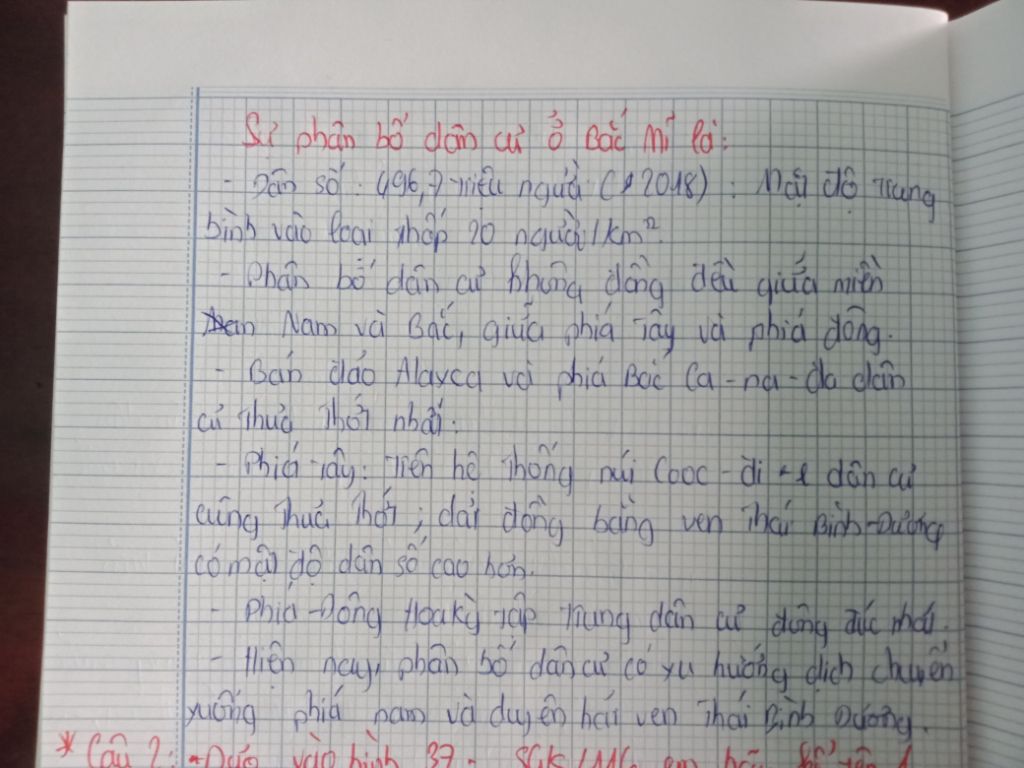 Sự phân bố dân cư ở Bắc Mĩ là:
- Dân số: 496,7 triệu người (2018). Mật độ trung
bình vào loại thấp 20 người/km².
- Phân bố dân cư không đồng đều giữa miền
Nam và Bắc, giữa phía Tây và phía đông.
- Bán đảo Alaxca và phía Bắc Ca-na-đa dân
cư thưa thớt nhất.
- Phía Tây: Trên hệ thống núi Cooc-di-e dân cư
cũng thưa thớt; dải đồng bằng ven Thái Bình Dương
có mật độ dân số cao hơn.
- Phía Đông Hoa kỳ tập trung dân cư đông đúc nhất.
- Hiện nay, phân bố dân cư có xu hướng dịch chuyển
xuống phía nam và duyên hải ven Thái Bình Dương.
* Câu 2: Dựa vào hình 37. SGK/116 em hãy